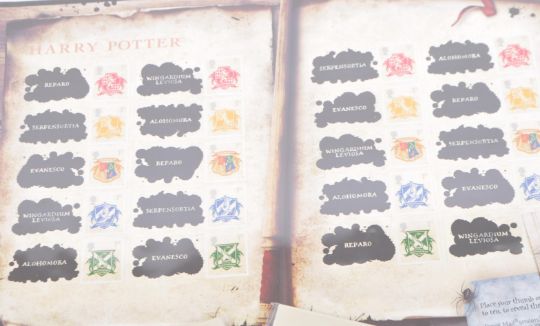 HARRY POTTER
REPARO
WINGARDIUM
LEVIOSA
SERPENSORTIA
ALOHOMORA
EVANESCO
REPARO
WINGARDIUM
LEVIOSA
SERPENSORTIA
ALOHOMORA
EVANESCO
SERPENSORTIA
ALOHOMORA
EVANESCO
REPARO
WINGARDIUM
LEVIOSA
SERPENSORTIA
ALOHOMORA
EVANESCO
REPARO
WINGARDIUM
LEVIOSA
Place your thumb
to ten, to reveal the